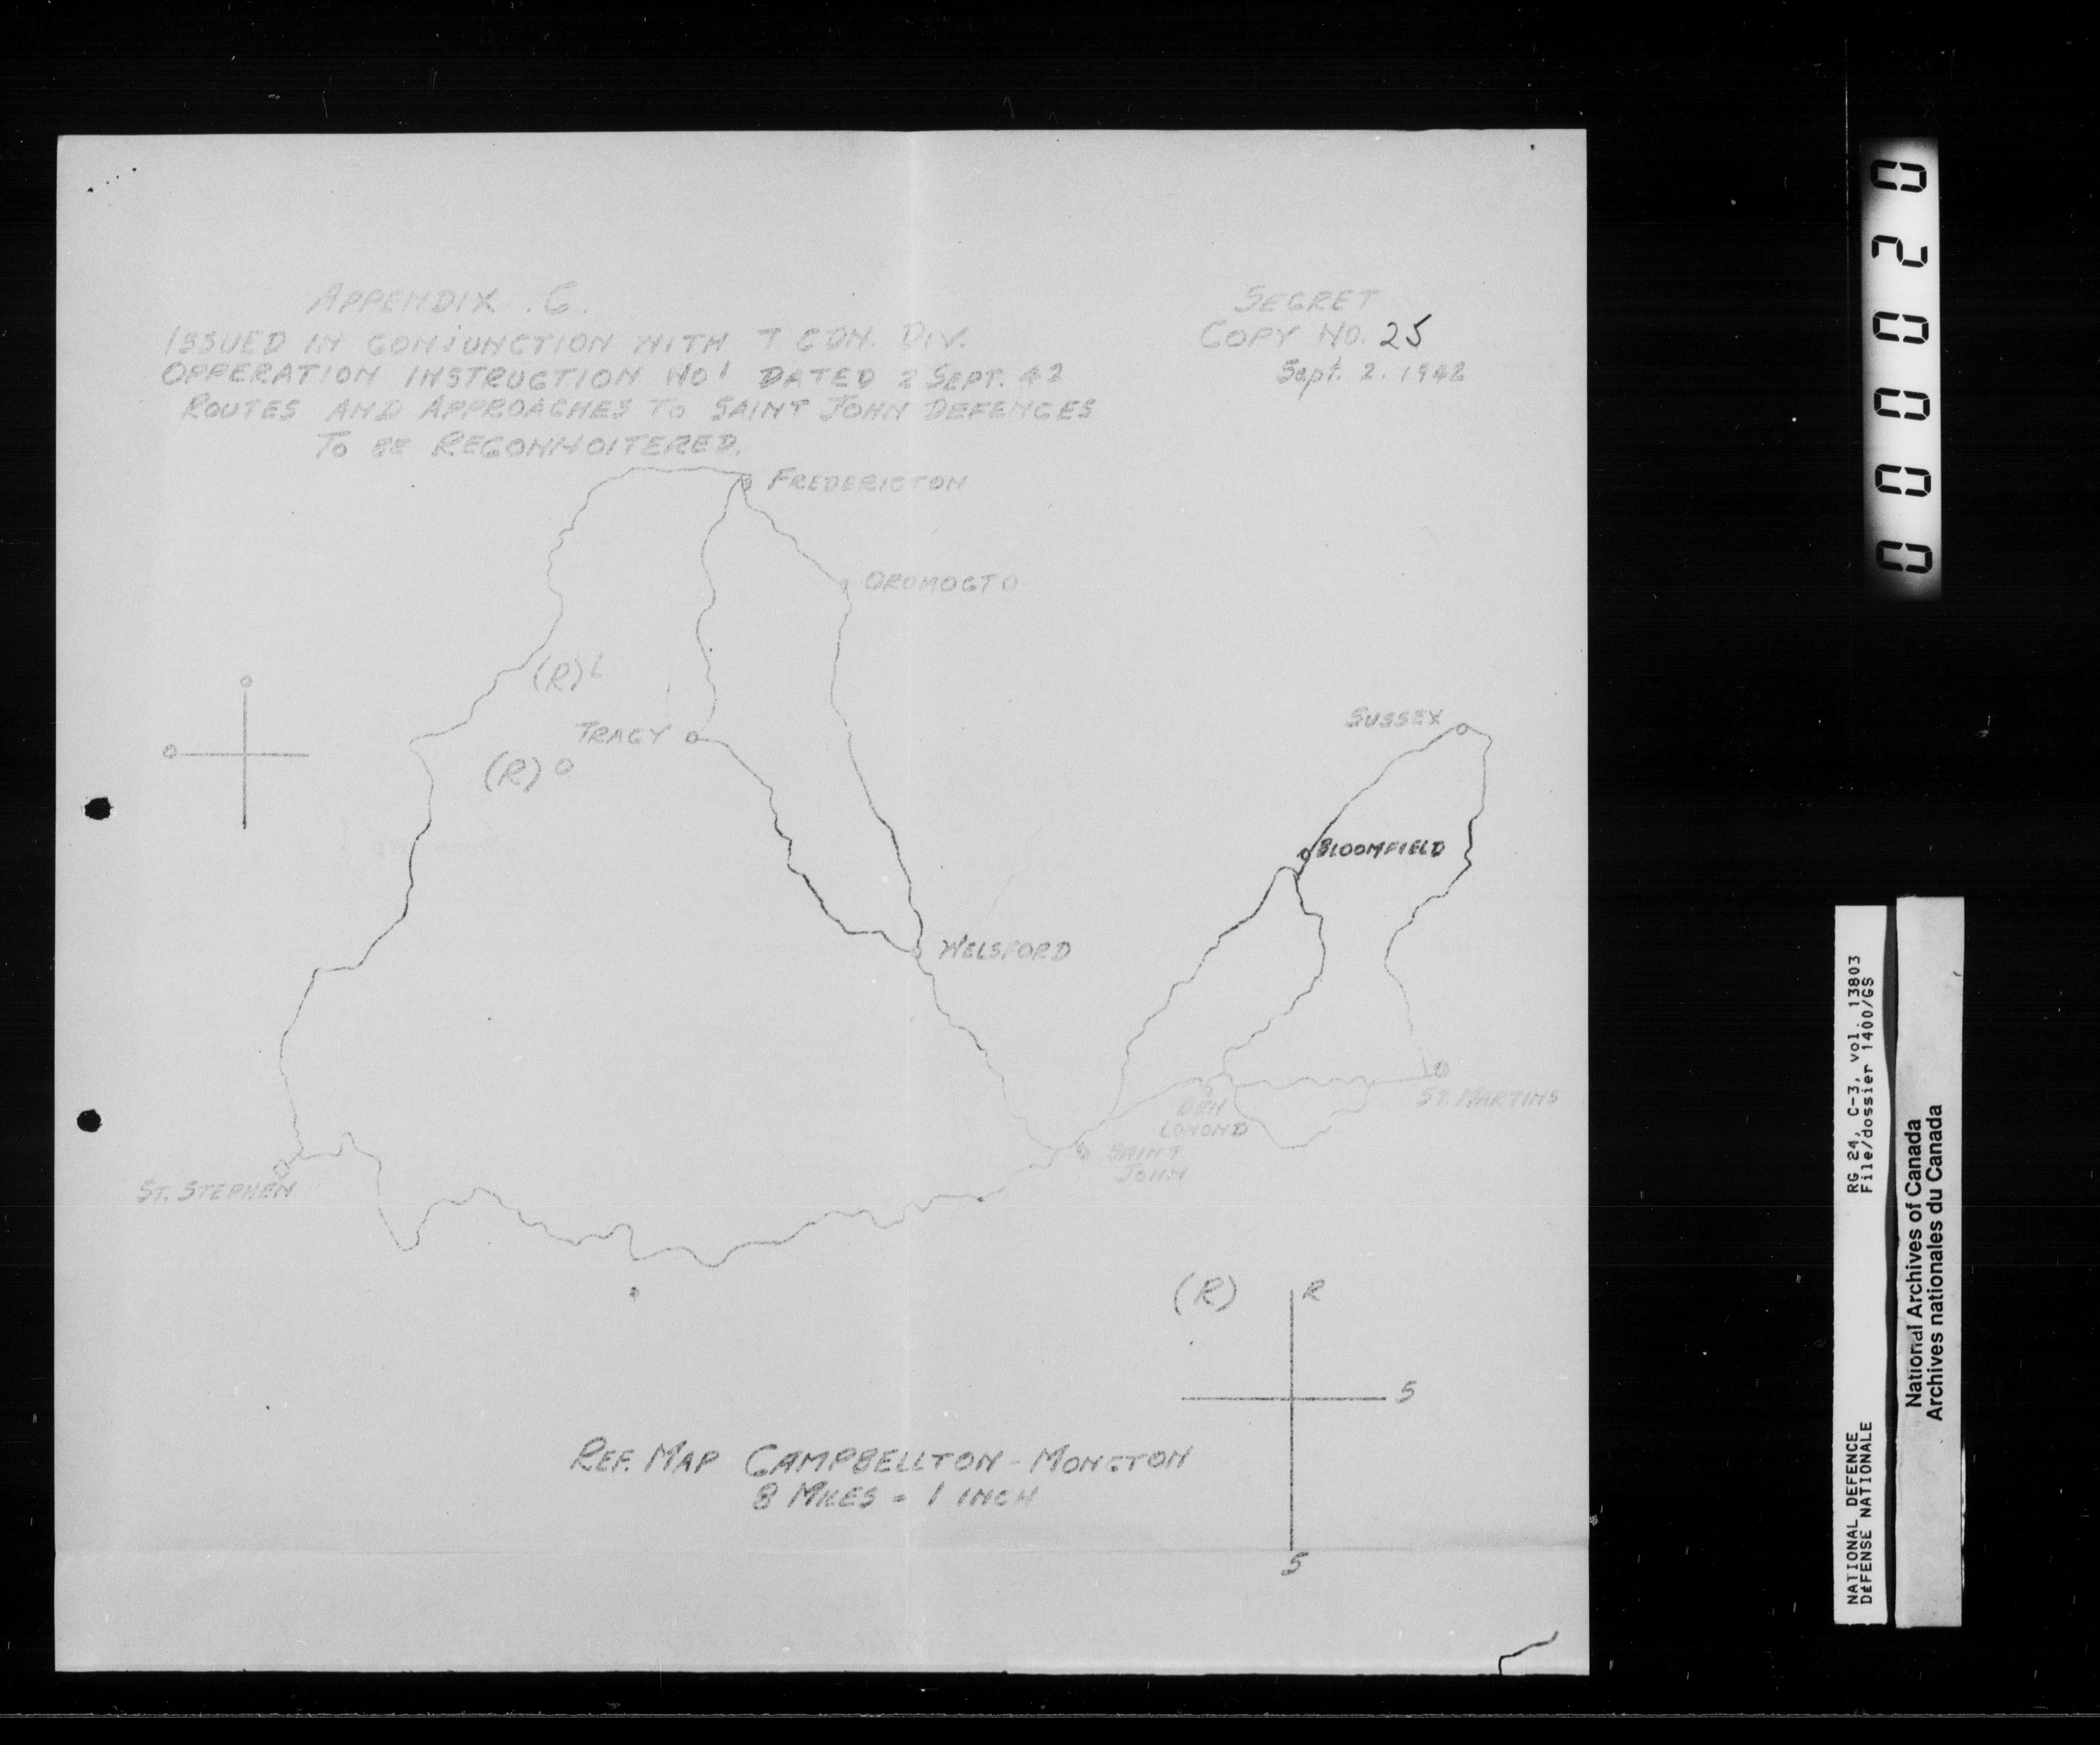 APPENDIX . C.
ISSUED IN CONJUNCTION WITH 7 CDN. DIV.
OPPERATION INSTRUCTION NO1 DATED 2 SEPT. 42
ROUTES AND APPROACHES TO SAINT JOHN DEFENCES
TO BE RECONNOITERED.
SECRET
COPY NO. 25
Sept. 2. 1942
FREDERICTON
OROMOCTO
(R) L
TRACY
(R) O
O
O
SUSSEX
BLOOMFIELD
WELSFORD
ST. MARTINS
BEN
LOMOND
SAINT
JOHN
ST. STEPHEN
(R)
R
S
S
REF. MAP CAMPBELLTON - MONCTON
8 MILES = 1 INCH
000020
RG 24, C-3, vol. 13803
File/dossier 1400/GS
NATIONAL DEFENCE
DÉFENSE NATIONALE
National Archives of Canada
Archives nationales du Canada